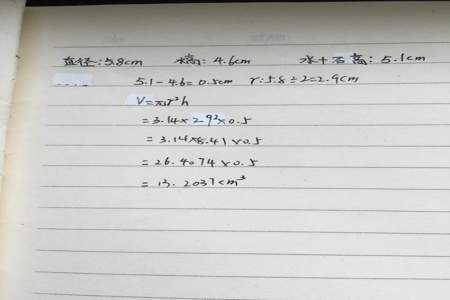 直径:5.8cm 水高:4.6cm 水+石高:5.1cm
5.1-4.6=0.5cm r:5.8÷2=2.9cm
V=πr²h
=3.14×2.9²×0.5
=3.14×8.41×0.5
=26.4074×0.5
=13.2037cm³